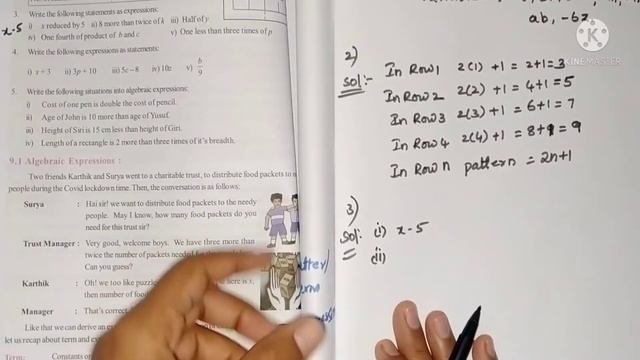 3. Write the following statements as expressions:
x-5 i) x reduced by 5 ii) 8 more than twice of k iii) Half of y
iv) One fourth of product of b and c v) One less than three times of p
4. Write the following expressions as statements:
i) x + 3 ii) 3p + 10 iii) 5c – 8 iv) 10z v) b/9
5. Write the following situations into algebraic expressions:
i) Cost of one pen is double the cost of pencil.
ii) Age of John is 10 more than age of Yusuf.
iii) Height of Siri is 15 cm less than height of Giri.
iv) Length of a rectangle is 2 more than three times of it's breadth.
9.1 Algebraic Expressions :
Two friends Karthik and Surya went to a charitable trust, to distribute food packets to
people during the Covid lockdown time. Then, the conversation is as follows:
Surya : Hai sir! we want to distribute food packets to the needy
people. May I know, how many food packets do you
need for this trust sir?
Trust Manager : Very good, welcome boys. We have three more than
twice the number of packets needed
Can you guess?
Karthik : Oh! we too like puzzle here is x,
then number of food
Manager : That's correct
Like that we can derive an
let us recap about term and
Term: Constants
ab, -6z
KINEMASTER
2)
Sol:- In Row 1 2(1) + 1 = 2+1 = 3
In Row 2 2(2) + 1 = 4+1 = 5
In Row 3 2(3) + 1 = 6+1 = 7
In Row 4 2(4) + 1 = 8+1 = 9
In Row n pattern = 2n+1
3)
Sol: (i) x-5
(ii)